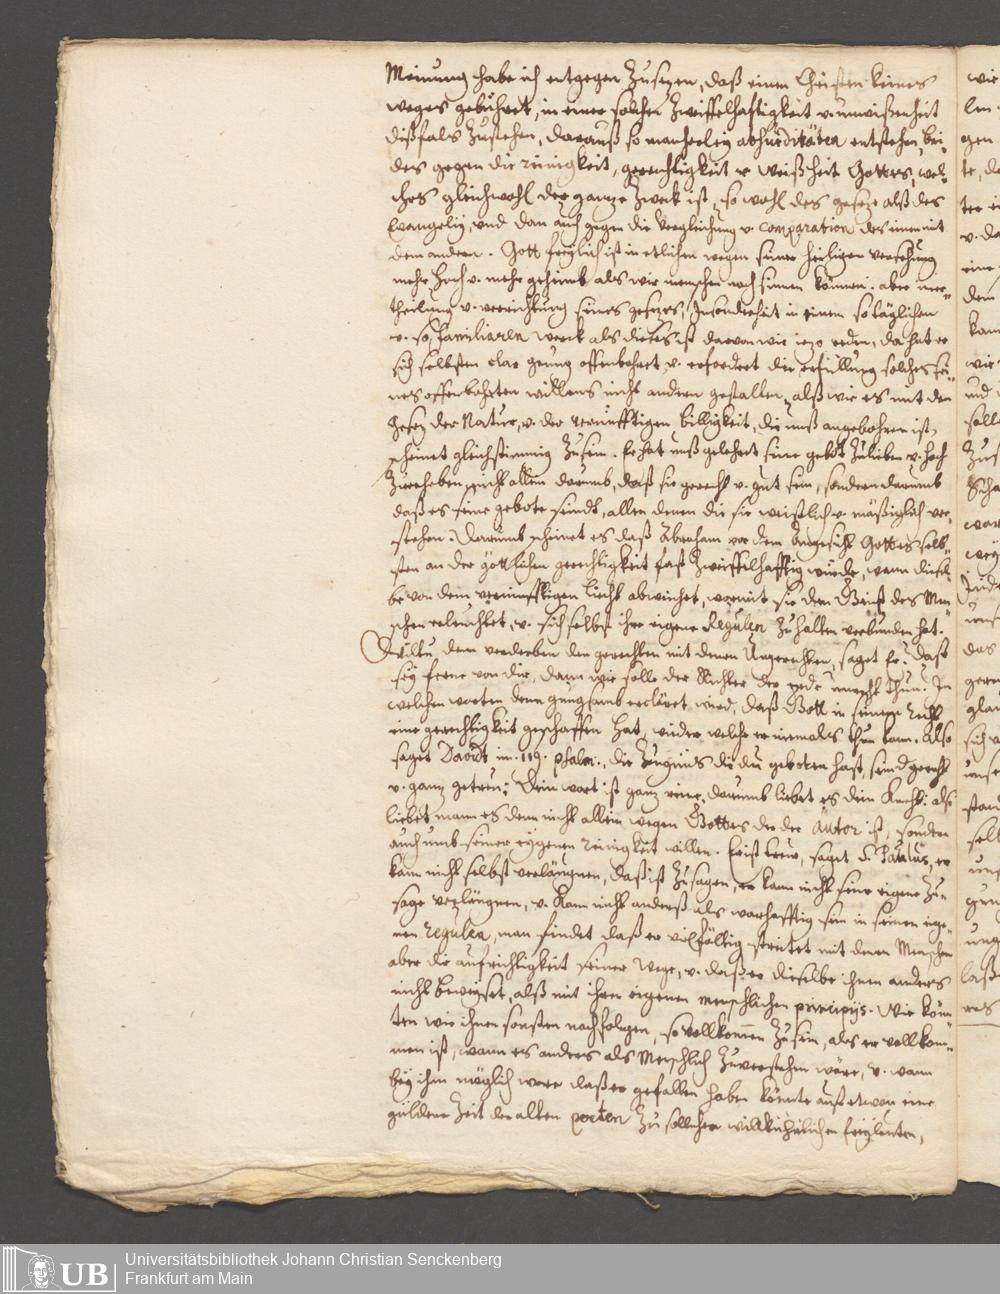 Meinung habe ich entgegen zusezen, daß einen Christen keines
weges gebühret, in einer solchen Zwiffelhafftigkeit v. unwißenheit
dißfals zustehen, darauß so mancherley absurditäten entstehen, bei-
des gegen die reinigkeit, gerechtigkeit v. Weißheit Gottes, wel-
ches gleichwohl der ganze Zweck ist, so wohl des gesezes alß des
Evangelij, und dan auch gegen die Vergleichung v. comparation des einen mit
dem andern. Gott freylich ist in etlichen wegen seiner heiligen versehung
mehr hoch v. mehr geheimb als wir menschen noch sinnen können. aber
theilung v. verrichtung seines gesezes, Insonderheit in einem so täglichen
v. so familiaren werck als dieses ist darvon wir iezo reden, da hat er
sich selbsten clar genug offenbahret v. erfordert die erfüllung solches sei-
nes offenbahrten willens nicht andren gestalten, alß wie es mit dem
Gesez der Natur, v. der vernünfftigen billigkeit, die unß angebohren ist,
scheinet gleichstimmig zusein. Er hat unß gelehret seine gebot zulieben v. hoch
zuerheben, nicht allein darumb, daß sie gerecht v. gut sein, sondern darumb
daß es seine gebote sindt, allen denen die sie weißlich v. mäßiglich ver-
stehen. Darumb scheinet es daß Abraham vor dem Angesicht Gottes selb-
sten an der göttlichen gerechtigkeit fast zweiffelhafftig würde, wann diesel-
be von dem vernünfftigen liecht abwichet, wormit sie den Geist des Men-
schen erleuchtet, v. sich selbst ihre eigene Regulen zu halten verbunden hat.
Wiltu denn verderben den gerechten mit denen Ungerechten, saget Er? daß
sey ferne von dir, dann wie solle der Richter der erde unrecht thun? In
welchen worten denn gungsamb erkläret wird, daß Gott in seinem recht
eine gerechtigkeit geschaffen hat, wieder welche er niemals thun kan. Also
saget David im. 119. psalm., die Zeugnis die du geboten hast, sind gerecht
v. ganz getreu; Dein wort ist ganz reine, darumb liebet es dein Knecht: alß
liebet mann es denn nicht allein wegen Gottes der der Autor ist, sonden
auch umb seiner eygenen reinigkeit willen. Er ist treue, saget S. Paulus, er
kann nicht selbst verläugnen, daß ist zusagen, er kann nicht seine eigene Zu-
sage verläugnen, v. kann nicht anderß als warhafftig sein in seinen eige-
nen regulen, man findet daß er vielfältig streitet mit denen Menschen
aber die aufrichtigkeit seiner Wege, v. daß er dieselbe ihnen anders
nicht beweyset, alß mit ihren eigenen menschlichen principijs. Wie kön-
ten wir ihnen sonsten nachfolgen, so vollkommen zu sein, als er vollkom-
men ist, wann es anders als Menschlich zuverstehen wäre, v. wann
bey ihm möglich were daß er gefallen haben könnte auß etwan eine
güldene Zeit der alten poeten zu sollicher willkührlichen
wie
len
gen
te, d
ter
v. da
eine
dem
kan
wir
und
solle
zus
Scha
war
weg
Jude
das
gere
glau
sich
unse
stan
selt
uns
gun
ung
laß
nes
UB Universitätsbibliothek Johann Christian Senckenberg
Frankfurt am Main